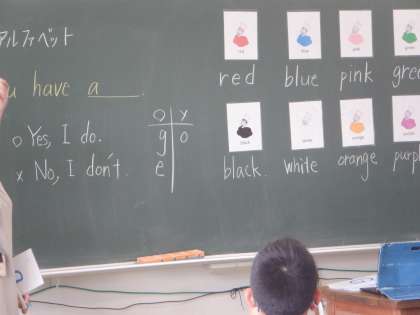 アルファベット
u have a ____.
o Yes, I do.
× No, I don't.
O Y
g o
e
red blue pink gree
black. white orange purp